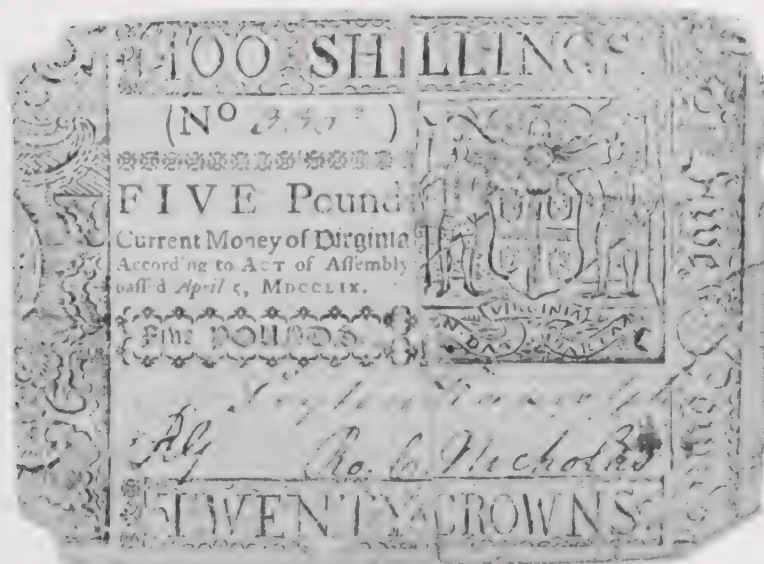 100 SHILLINGS
(No )
FIVE Pounds
Current Money of Virginia
According to ACT of Assembly
passed April 5, MDCCLIX.
FIVE POUNDS
VIRGINIA
EN DAT
Ro. C. Nicholas
TWENTY CROWNS